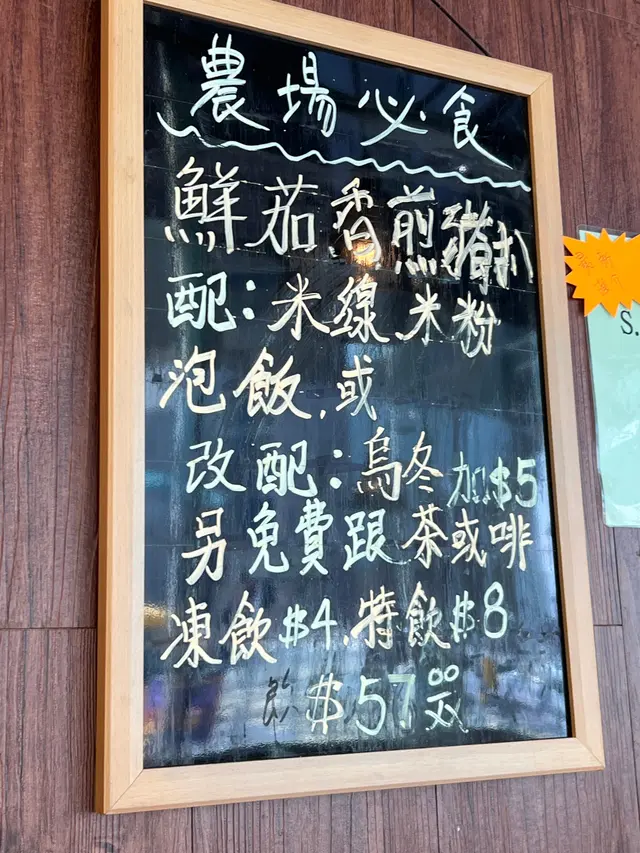 農場必食
鮮茄香煎豬扒
配：米線米粉
泡飯，或
改配：烏冬加$5
另免費跟茶或啡
凍飲$4，特飲$8
飲 $57.00
S.